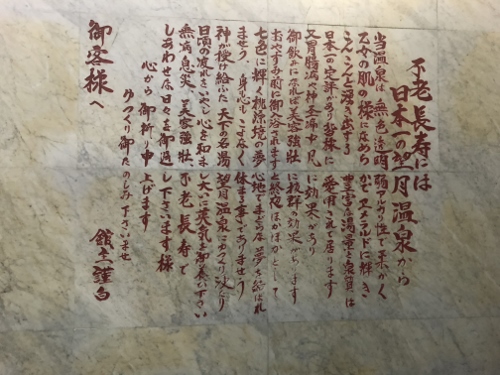 不老長寿には
日本一の望月温泉から
当温泉は無色透明弱アルカリ性で柔かく
乙女の肌の様になめらかでエメラルドに輝き
こんこんと湧き出ずる豊富な湯量と泉質は
日本一の定評があり皆様に愛用されて居ります
又胃腸病や神圣痛中凡に効果があり
御飲みになれば美容強壮に抜群の効果がります
おやすみ前に御入浴されますと終夜ほかほかとして
七色に輝く桃源境の夢心地で すばらしい夢を結ばれ
ませう 身も心もよみがえり 休まる事でありませう
神が授け給ふた天下の名湯望月温泉にゆっくり ひたり
日頃の疲れをいやし心を和ませ大いに英気を御養い下さい
無病息災、美容強壮、不老長寿で
しあわせな日々を御過し下さいます様
心から御祈り申上げます
ゆっくり御たのしみ下さいませ
館主謹白
御客様へ